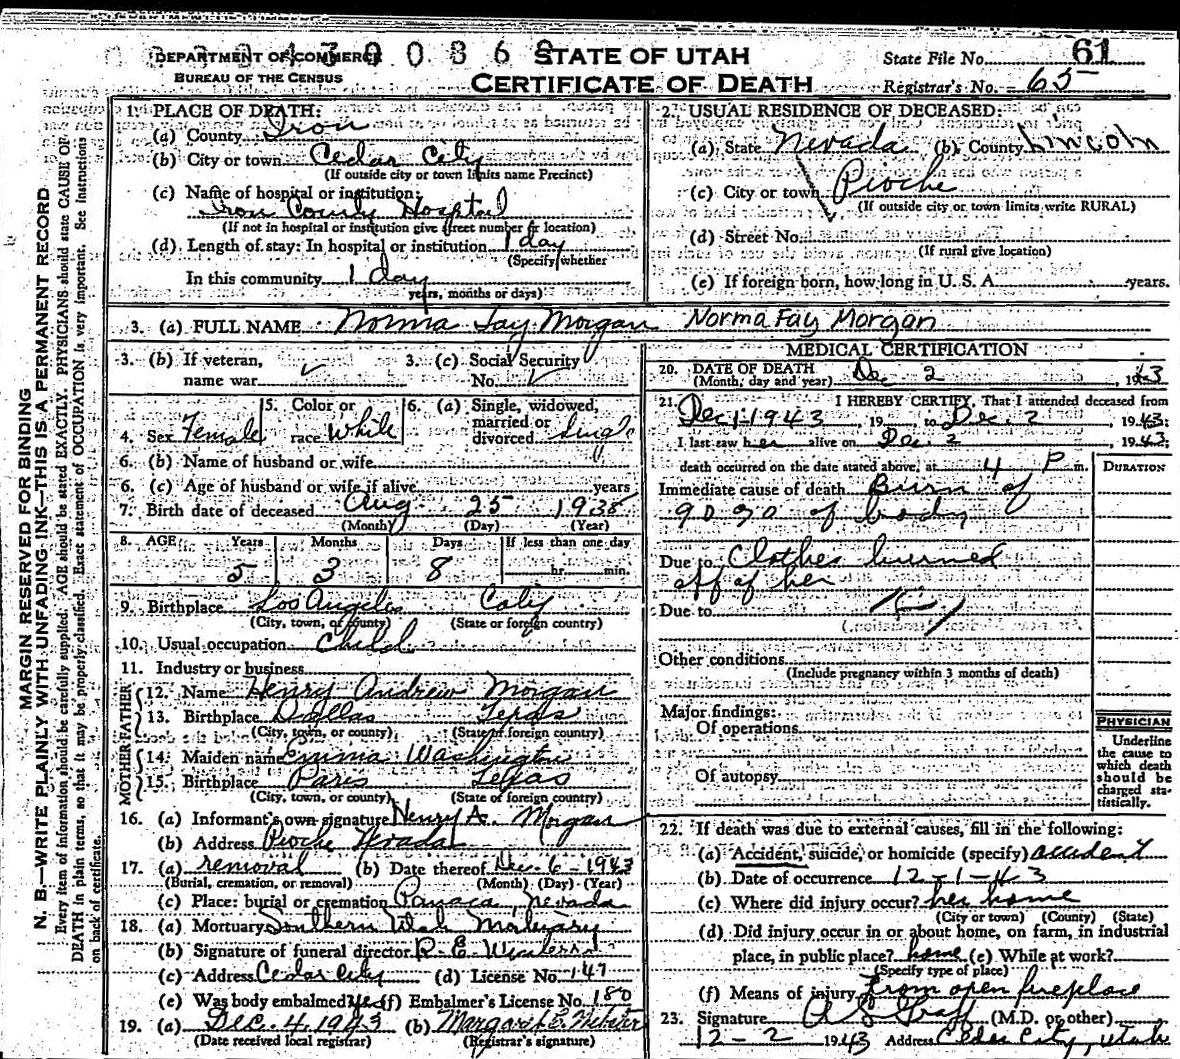 DEPARTMENT OF COMMERCE
BUREAU OF THE CENSUS
STATE OF UTAH
CERTIFICATE OF DEATH
State File No. 61
Registrar's No. 65
MARGIN RESERVED FOR BINDING
N. B.—WRITE PLAINLY WITH UNFADING INK—THIS IS A PERMANENT RECORD
Every item of information should be carefully supplied. AGE should be stated EXACTLY. PHYSICIANS should state CAUSE OF
DEATH in plain terms, so that it may be properly classified. Exact statement of OCCUPATION is very important. See Instructions
on back of certificate.
1. PLACE OF DEATH:
(a) County Iron
(b) City or town Cedar City
(If outside city or town limits name Precinct)
(c) Name of hospital or institution:
Iron County Hospital
(If not in hospital or institution give street number or location)
(d) Length of stay: In hospital or institution 1 day
(Specify whether
In this community 1 day
years, months or days)
2. USUAL RESIDENCE OF DECEASED:
(a) State Nevada (b) County Lincoln
(c) City or town Pioche
(If outside city or town limits write RURAL)
(d) Street No.
(If rural give location)
(e) If foreign born, how long in U. S. A. years.
3. (a) FULL NAME Norma Fay Morgan Norma Fay Morgan
3. (b) If veteran, name war
3. (c) Social Security No.
4. Sex Female
5. Color or race White
6. (a) Single, widowed, married or divorced Single
6. (b) Name of husband or wife
6. (c) Age of husband or wife if alive years
7. Birth date of deceased Aug. 25 1938
(Month) (Day) (Year)
8. AGE Years Months Days If less than one day
5 3 8 hr. min.
9. Birthplace Los Angeles Caly
(City, town, or county) (State or foreign country)
10. Usual occupation Child
11. Industry or business
FATHER
12. Name Henry Andrew Morgan
13. Birthplace Dallas Texas
(City, town, or county) (State of foreign country)
MOTHER
14. Maiden name Emma Washington
15. Birthplace Paris Texas
(City, town, or county) (State of foreign country)
16. (a) Informant's own signature Henry A. Morgan
(b) Address Pioche Nevada
17. (a) removal (b) Date thereof Dec. 6-1943
(Burial, cremation, or removal) (Month) (Day) (Year)
(c) Place: burial or cremation Panaca, Nevada
18. (a) Mortuary Southern Utah Mortuary
(b) Signature of funeral director R. E.
(c) Address Cedar City (d) License No. 147
(e) Was body embalmed? yes (f) Embalmer's License No. 180
19. (a) Dec. 4, 1943 (b) Margaret E. Webster
(Date received local registrar) (Registrar's signature)
MEDICAL CERTIFICATION
20. DATE OF DEATH
(Month, day and year) Dec 2, 1943
21. I HEREBY CERTIFY, That I attended deceased from
Dec 1-1943, 19 to Dec. 2, 1943;
I last saw her alive on Dec. 2 1943;
death occurred on the date stated above, at 4 P m.
DURATION
Immediate cause of death Burn of
90 % of body
Due to Clothes burned
off of her
Due to
Other conditions
(Include pregnancy within 3 months of death)
Major findings:
Of operations
Of autopsy
PHYSICIAN
Underline
the cause to
which death
should be
charged sta-
tistically.
22. If death was due to external causes, fill in the following:
(a) Accident, suicide, or homicide (specify) accident
(b) Date of occurrence 12-1-43
(c) Where did injury occur? her home
(City or town) (County) (State)
(d) Did injury occur in or about home, on farm, in industrial
place, in public place? home (e) While at work?
(Specify type of place)
(f) Means of injury from open fireplace
23. Signature (M.D. or other)
12-2 1943 Address Cedar City, Utah